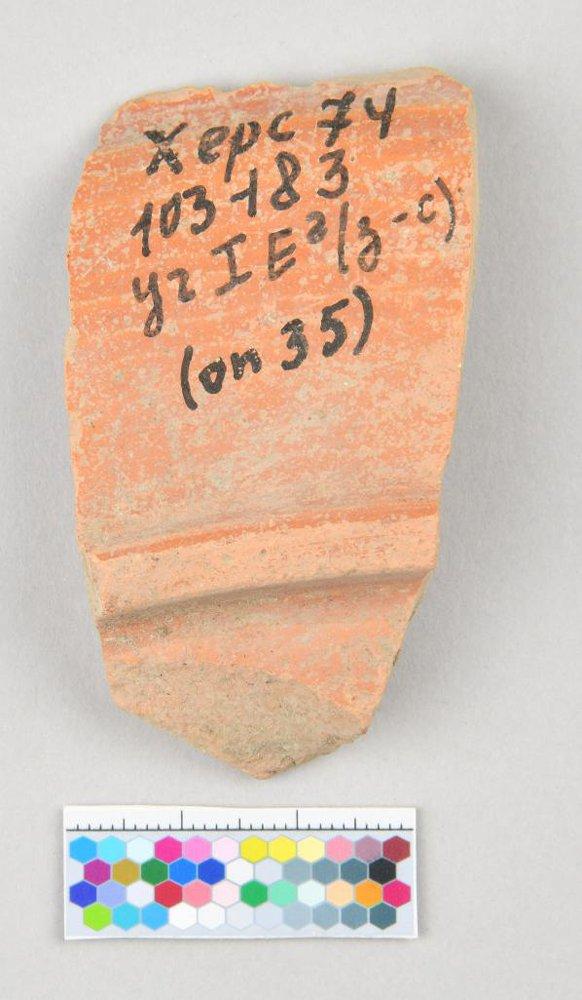 Херс 74
103-183
уг I E² (з-с)
(оп 35)